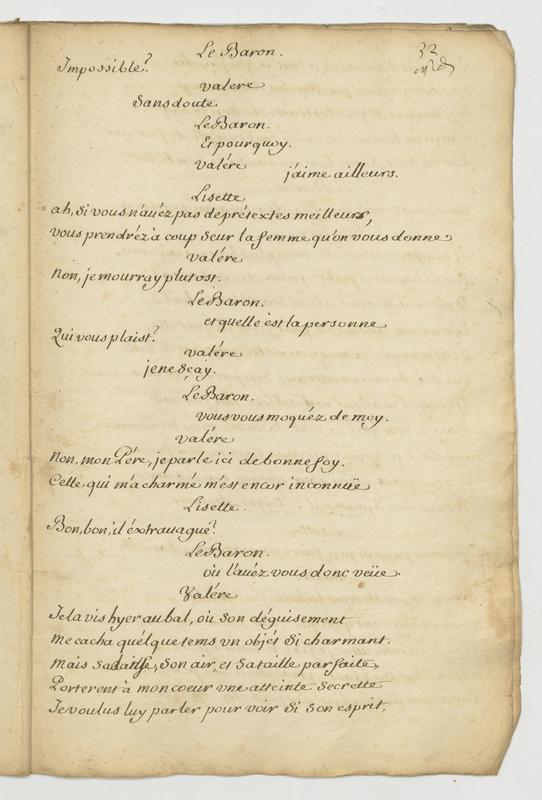 32
Le Baron.
Impossible?
valere
Sans doute
Le Baron.
Et pourquoy.
valére
j'aime ailleurs.
Lisette
ah, si vous n'auéz pas de prétextes meilleurs,
vous prendréz à coup seur la femme qu'on vous donne
valére
Non, je mourray plutost.
Le Baron.
et quelle est la personne
Qui vous plaist?
valére
je ne sçay.
Le Baron.
vous vous moquéz de moy.
valére
Non, mon Pére, je parle ici de bonne foy.
Celle qui m'a charmé m'est encor inconnüe
Lisette.
Bon, bon, il éxtrauague!
Le Baron.
où l'auéz vous donc veüe.
Valére
Je la vis hyer au bal, où son déguisement
me cacha quélque tems un objét si charmant.
mais sa danse, son air, et sa taille parfaite,
Porterent à mon coeur une atteinte secrette
Je voulus luy parler pour voir si son esprit.